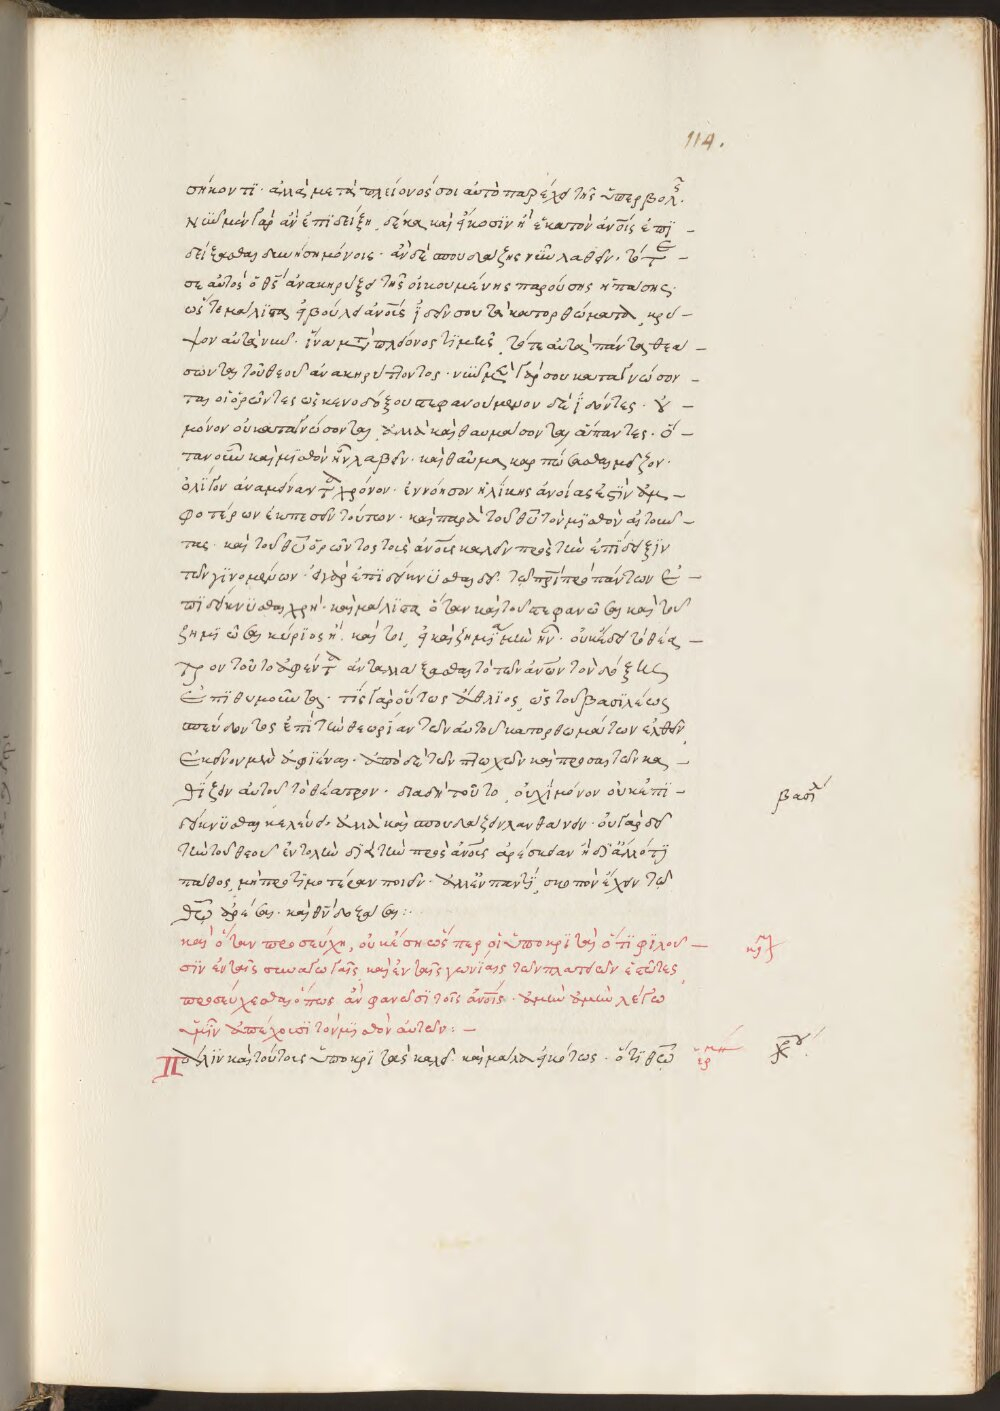 114.
σήκοντι· ἀλλὰ μετὰ πλείονός σοι αὐτὸ παρέχει τῆς ὑπερβολῆς.
νῦν μὲν γὰρ ἂν ἐπιδείξῃ, δέκα καὶ εἴκοσιν ἢ ἑκατὸν ἀνοις ἐπι –
δείξασθαι δυνήσῃ μόνοις· ἂν δὲ σπουδάζῃς νῦν λαθεῖν, τότε –
σε αὐτὸς ὁ θς ἀνακηρύξει τῆς οἰκουμένης παρούσης ἁπάσης·
ὥστε μάλιστα εἰ βούλει ἀνοις ἰδεῖν σου τὰ κατορθώματα, κρύ –
ψον αὐτὰ νῦν· ἵνα μετὰ πλείονος τιμῆς, τότε αὐτὰ πάντες θεά –
σωνται τοῦ θεοῦ ἀνακηρύττοντος· νῦν μὲν γάρ σου καταγνώσον –
ται οἱ ὁρῶντες ὡς κενοδόξου στεφανούμενον δὲ ἰδόντες· οὐ –
μόνον οὐ καταγνώσονται, ἀλλὰ καὶ θαυμάσονται ἅπαντες· ὅ –
ταν οὖν καὶ μισθὸν ἦν λαβεῖν· καὶ θαῦμα καρπώσασθαι μεῖζον·
ὀλίγον ἀναμείναντα χρόνον· ἐννόησον ἡλίκης ἀνοίας ἐστὶν ἀμ –
φοτέρων ἐκπεσεῖν τούτων· καὶ παρὰ τοῦ θυ τὸν μισθὸν αἰτοῦν –
τας· καὶ τοῦ θυ ὁρῶντος τοὺς ἀνους καλεῖν πρὸς τὴν ἐπίδειξιν
τῶν γινομένων· εἰ γὰρ ἐπιδείκνυσθαι δεῖ· τῷ πρι πρὸ πάντων ἐ –
πιδείκνυσθαι χρή· καὶ μάλιστα ὅταν καὶ τοῦ στεφανῶσαι καὶ τοῦ
ζημιῶσαι κύριος ᾖ· καίτοι, εἰ καὶ ζημία μὴ ἦν· οὐκ ἔδει τὸ θέα –
τρον τοῦτο ἀφέντα ἀνταλλάξασθαι τὸ τῶν ἀνων τὸν δόξης
ἐπιθυμοῦντα· τίς γὰρ οὕτως ἄθλιος, ὡς τοῦ βασιλέως
σπεύδοντος ἐπὶ τὴν θεωρίαν τῶν αὐτοῦ κατορθωμάτων ἐλθεῖν,
ἐκεῖνον μὲν ἀφιέναι· ἀπὸ δὲ τῶν πτωχῶν καὶ προσαιτῶν κα –
θίζειν αὐτοῦ τὸ θέατρον· διὰ δὴ τοῦτο, οὐχὶ μόνον οὐκ ἐπι –
δείκνυσθαι κελεύει· ἀλλὰ καὶ σπουδάζειν λανθάνειν· οὐ γὰρ δεῖ
τὴν τοῦ θεοῦ ἐντολὴν διὰ τὴν πρὸς ἀνους ἀρέσκειαν ἢ δι' ἄλλό τι
πάθος, μὴ προτιμοτέραν ποιεῖν· ἀλλ' ἐν παντί, σκοπὸν ἔχειν τῷ
θῷ ἀρέσαι· καὶ θν δοξάσαι:·
βασιλ
καὶ ὅταν προσεύχῃ, οὐκ ἔσῃ ὥσπερ οἱ ὑποκριταὶ ὅτι φιλοῦ –
σιν ἐν ταῖς συναγωγαῖς, καὶ ἐν ταῖς γωνίαις τῶν πλατειῶν ἑστῶτες
προσεύχεσθαι ὅπως ἂν φανῶσι τοῖς ἀνοις· ἀμὴν ἀμὴν λέγω
ὑμῖν ἀπέχουσι τὸν μισθὸν αὐτῶν: –
Πάλιν καὶ τούτους ὑποκριτὰς καλεῖ· καὶ μάλα εἰκότως· ὅτι θω